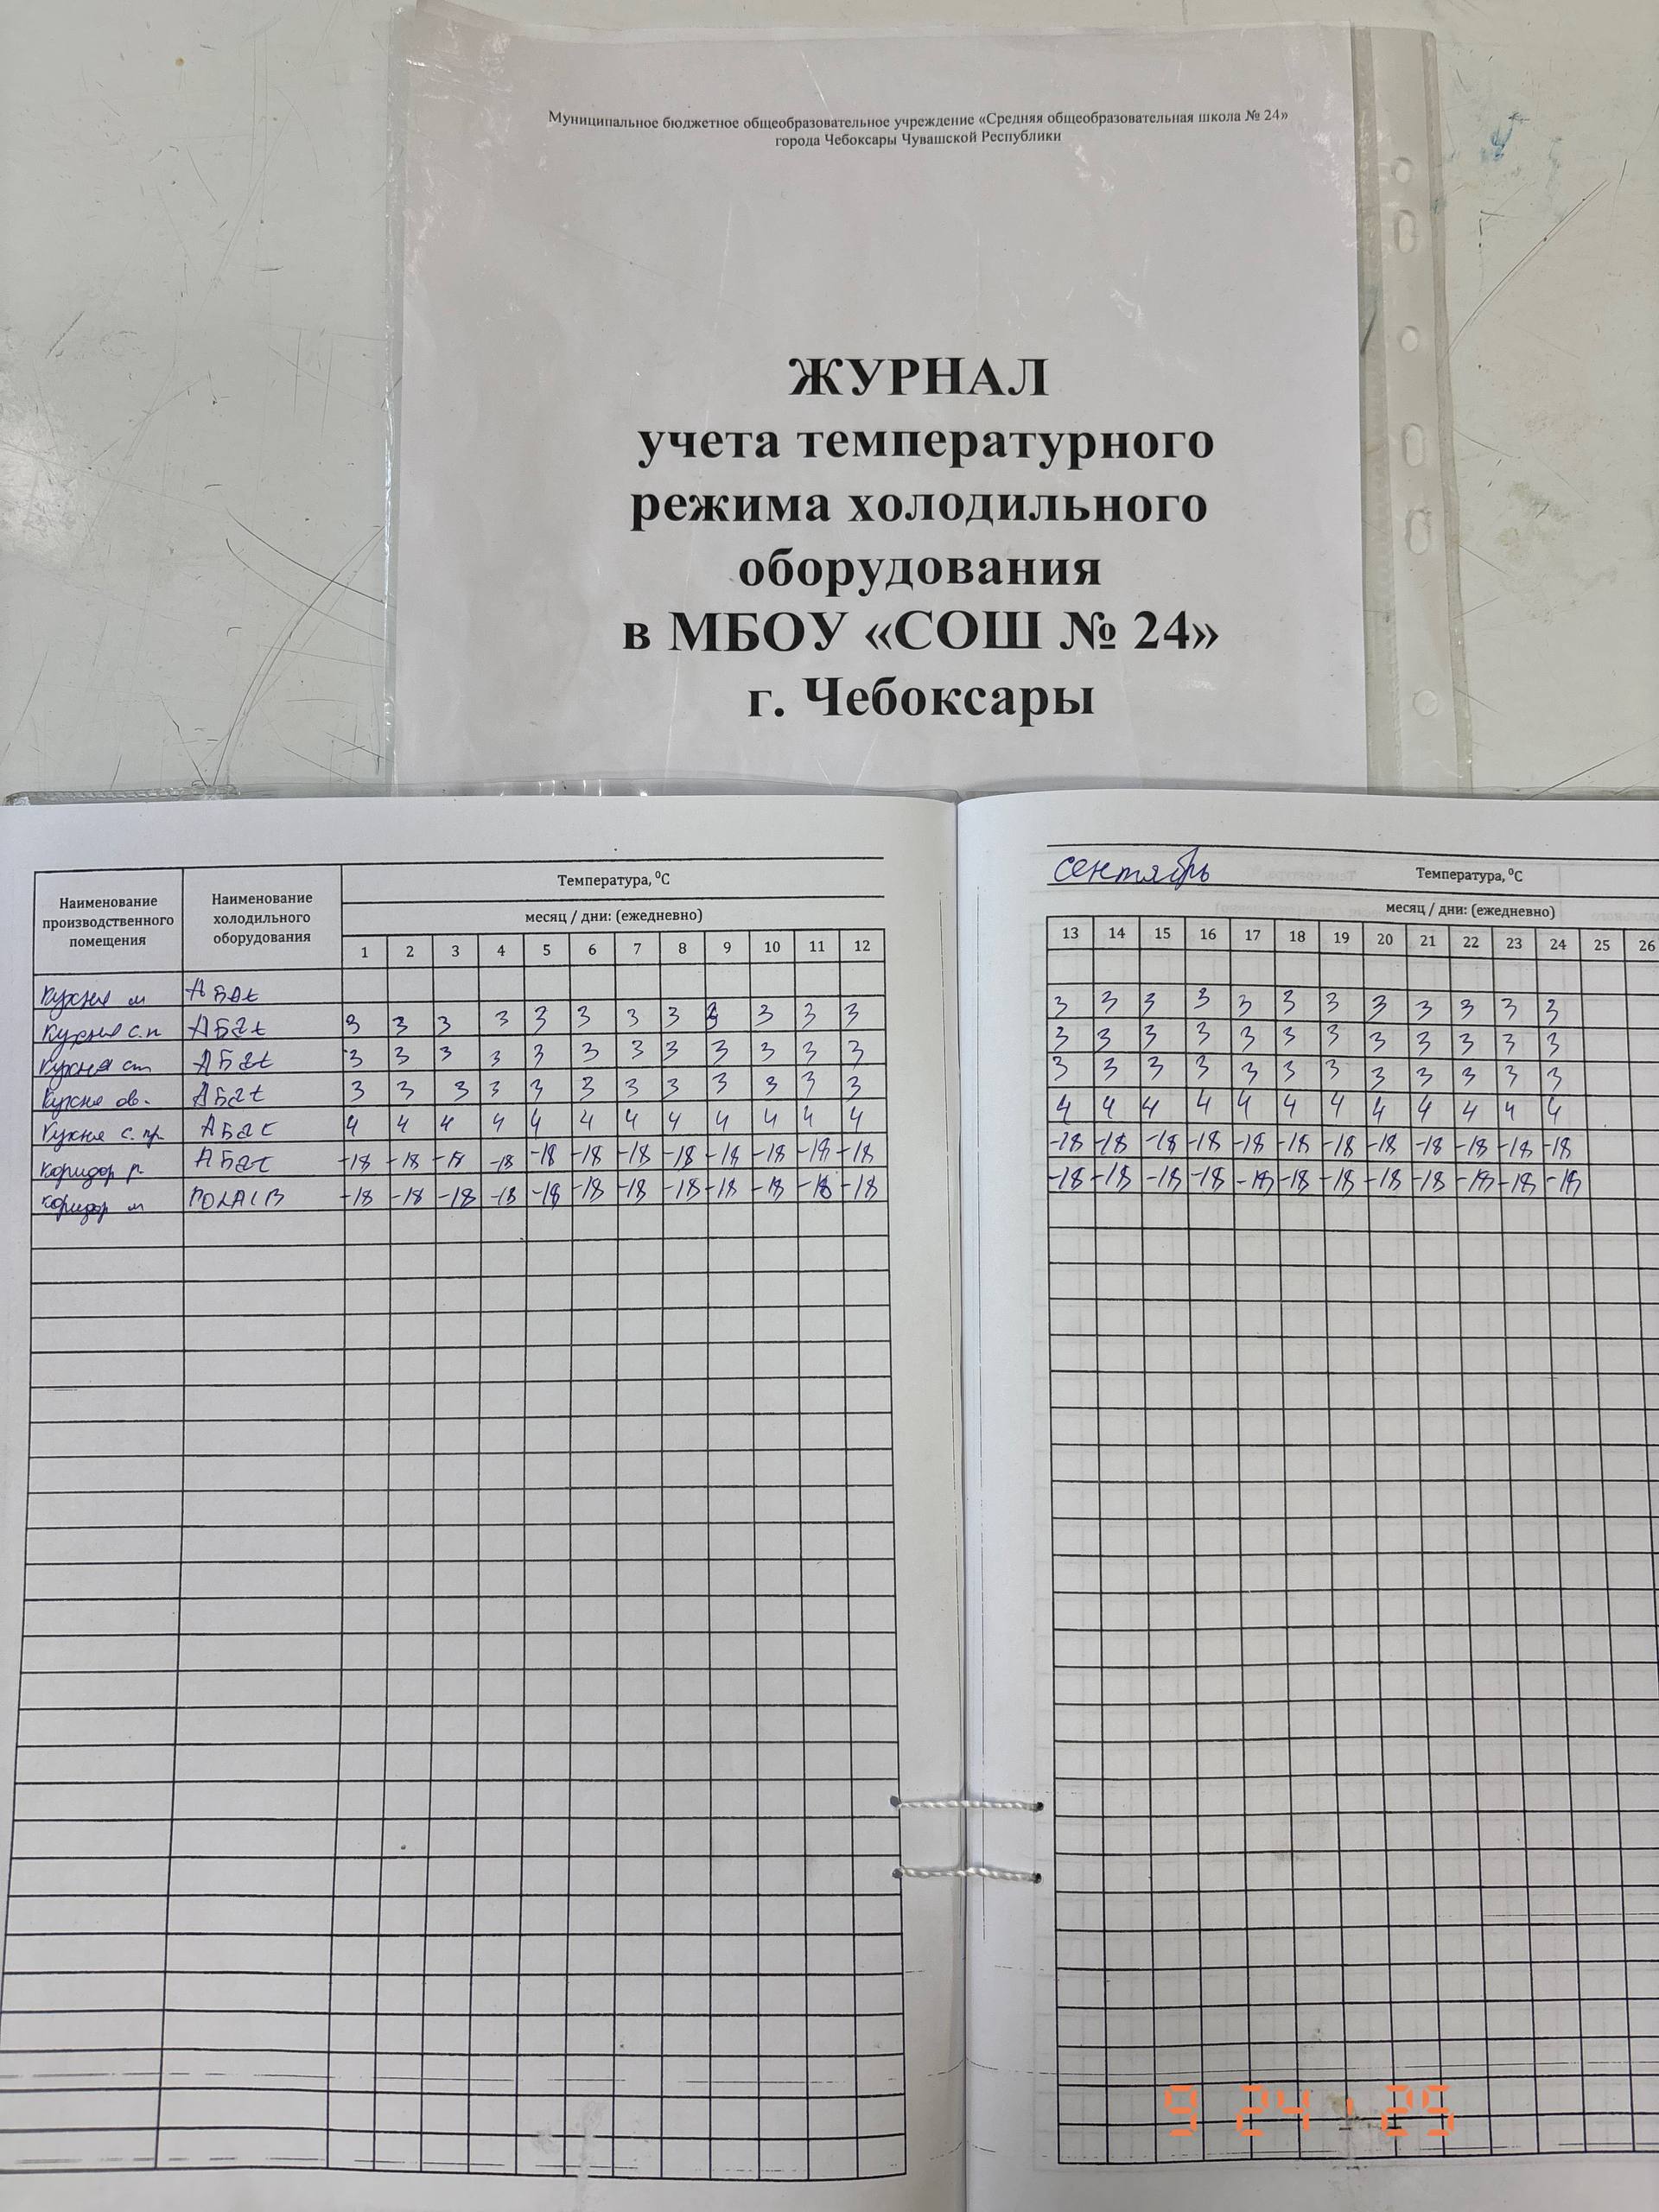 Муниципальное бюджетное общеобразовательное учреждение «Средняя общеобразовательная школа № 24»
города Чебоксары Чувашской Республики
ЖУРНАЛ
учета температурного
режима холодильного
оборудования
в МБОУ «СОШ № 24»
г. Чебоксары
Наименование производственного помещения Наименование холодильного оборудования Температура, ⁰С
месяц / дни: (ежедневно)
1 2 3 4 5 6 7 8 9 10 11 12
Кухня м АБАt
Кухня с.п АБАt 3 3 3 3 3 3 3 3 3 3 3 3
Кухня ст АБАt 3 3 3 3 3 3 3 3 3 3 3 3
Кухня ов. АБАt 3 3 3 3 3 3 3 3 3 3 3 3
Кухня с. пр. АБАt 4 4 4 4 4 4 4 4 4 4 4 4
Коридор р АБАt -18 -18 -18 -18 -18 -18 -18 -18 -18 -18 -18 -18
Коридор м POLAIR -18 -18 -18 -18 -18 -18 -18 -18 -18 -18 -18 -18
сентябрь Температура, ⁰С
месяц / дни: (ежедневно)
13 14 15 16 17 18 19 20 21 22 23 24 25 26
3 3 3 3 3 3 3 3 3 3 3 3
3 3 3 3 3 3 3 3 3 3 3 3
3 3 3 3 3 3 3 3 3 3 3 3
4 4 4 4 4 4 4 4 4 4 4 4
-18 -18 -18 -18 -18 -18 -18 -18 -18 -18 -18 -18
-18 -18 -18 -18 -18 -18 -18 -18 -18 -18 -18 -18
9 24 ' 25